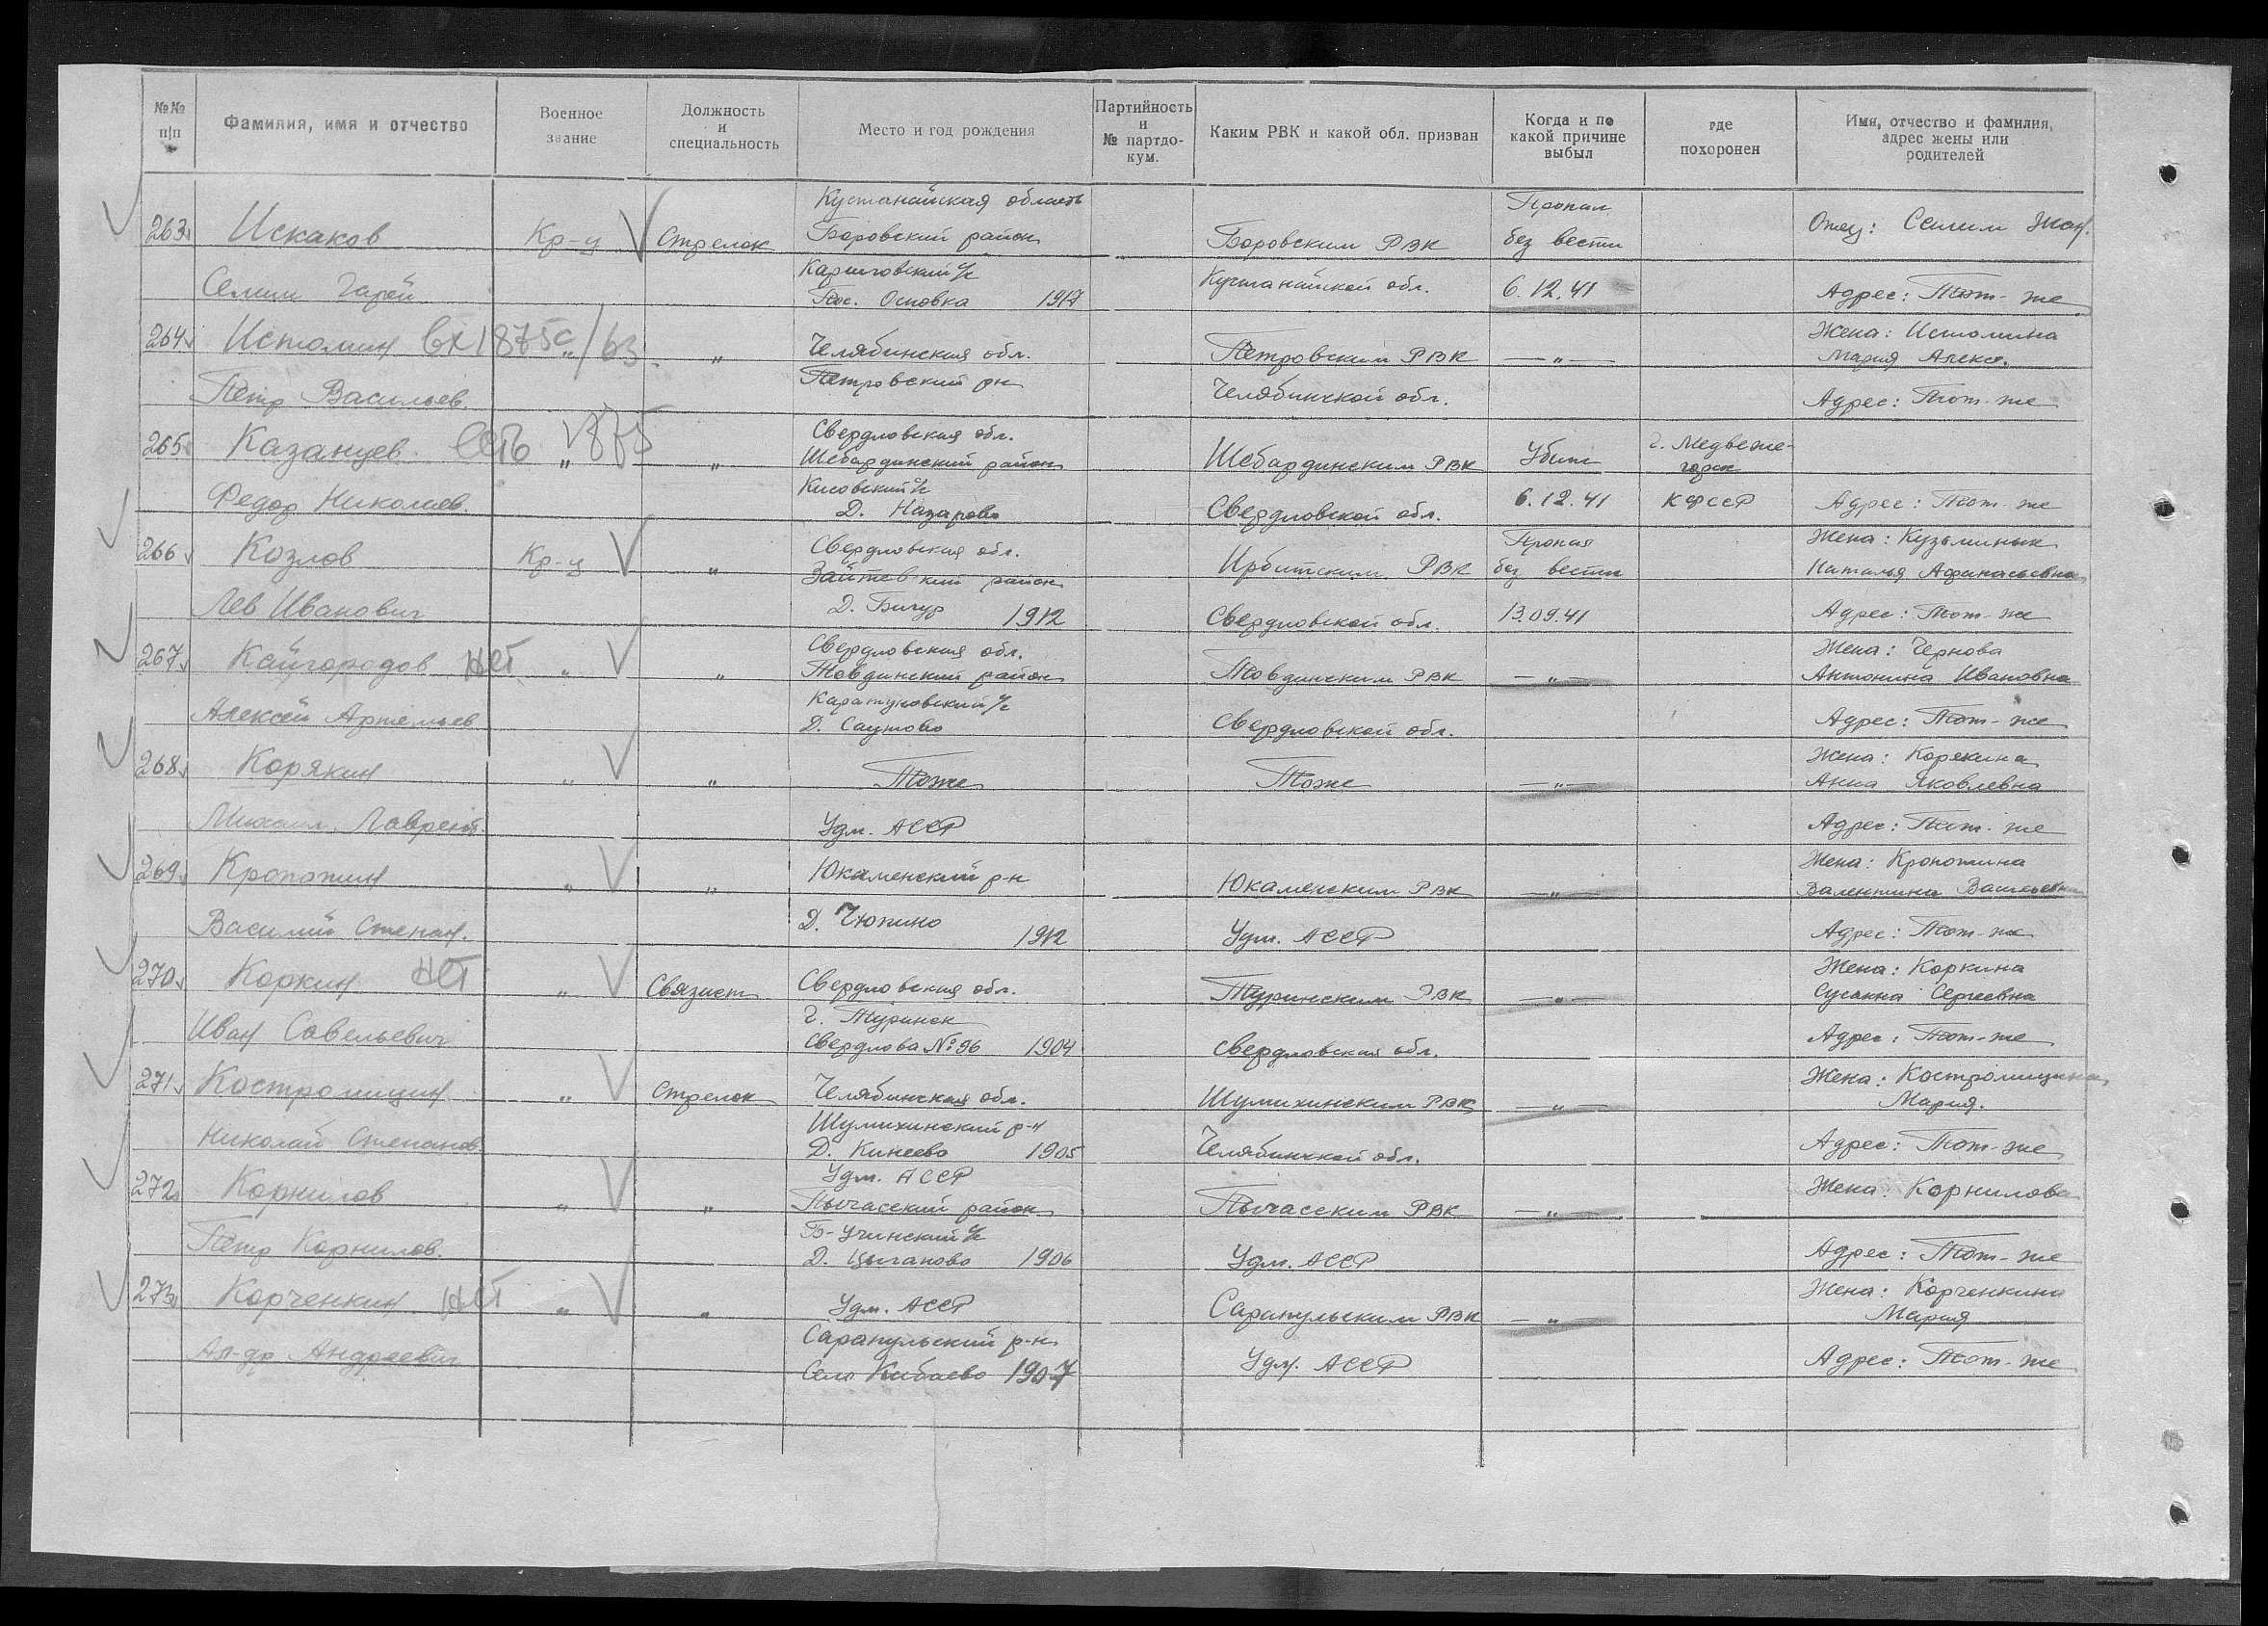 №№ п/п | Фамилия, имя и отчество | Военное звание | Должность и специальность | Место и год рождения | Партийность и № партдокум. | Каким РВК и какой обл. призван | Когда и по какой причине выбыл | где похоронен | Имя, отчество и фамилия, адрес жены или родителей
Кустанайская область Пропал
263 Искаков Кр-ц Стрелок Боровский район Боровским РВК без вести Отец: Селим
Селим Гарей Пос. Осиповка 1917 Кустанайской обл. 6.12.41 Адрес: Тот-же
Жена: Истомина
264 Истомин вх 1875с/63 " Челябинская обл. Петровским РВК —"— Мария Алекс.
Петр Васильев. Петровский рн Челябинской обл. Адрес: Тот-же
Свердловская обл. г. Медвеже-
265 Казанцев есть " 1875 " Шебардинский район Шебардинским РВК Убит горск
Федор Николаев. Д. Назарово Свердловской обл. 6.12.41 КФССР Адрес: Тот-же
Свердловская обл. Пропал Жена: Кузьминых
266 Козлов Кр-ц " район Ирбитским РВК без вести Наталья Афанасьевна
Лев Иванович Д. Бичур 1912 Свердловской обл. 13.09.41 Адрес: Тот-же
Свердловская обл. Жена: Чернова
267 Кайгородов нет " " Товдинский район Товдинским РВК —"— Антонина Ивановна
Алексей Артемьев Каратуновский с/с
Д. Саутово Свердловской обл. Адрес: Тот-же
Жена: Корякина
268 Корякин " " Тоже Тоже —"— Анна Яковлевна
Михаил Лаврент Удм. АССР Адрес: Тот-же
Жена: Кропотина
269 Кропотин " " Юкаменский р-н Юкаменским РВК —"— Валентина Васильевна
Василий Степан. Д. Чюпино 1912 Удм. АССР Адрес: Тот-же
Жена: Коркина
270 Коркин нет " Связист Свердловская обл. Туринским РВК —"— Сусанна Сергеевна
Иван Савельевич г. Туринск
Свердлова №96 1904 Свердловская обл. Адрес: Тот-же
Жена: Костромицина
271 Костромицин " Стрелок Челябинская обл. Шумихинским РВК —"— Мария.
Шумихинский р-н
Николай Степанов. Д. Кинеево 1905 Челябинской обл. Адрес: Тот-же
Удм. АССР
272 Корнилов " " Пычасский район Пычасским РВК —"— Жена: Корнилова
Б-Учинский с/с
Петр Корнилов. Д. Цыганово 1906 Удм. АССР Адрес: Тот-же
Жена: Корченкина
273 Корченкин нет " " Удм. АССР Сарапульским РВК —"— Мария
Сарапульский р-н
Ал-др Андреевич Село Кибаево 1907 Удм. АССР Адрес: Тот-же